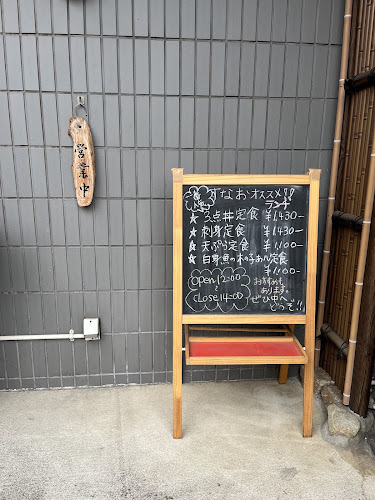 営業中
すなおオススメ!!
ランチ
★3点丼定食 ¥1,430-
★刺身定食 ¥1,430-
★天ぷら定食 ¥1,100-
★白身魚の木の子あん定食
¥1,100-
open 12:00
close 14:00
おすすめも
あります。
ぜひ中へ
どうぞ!!